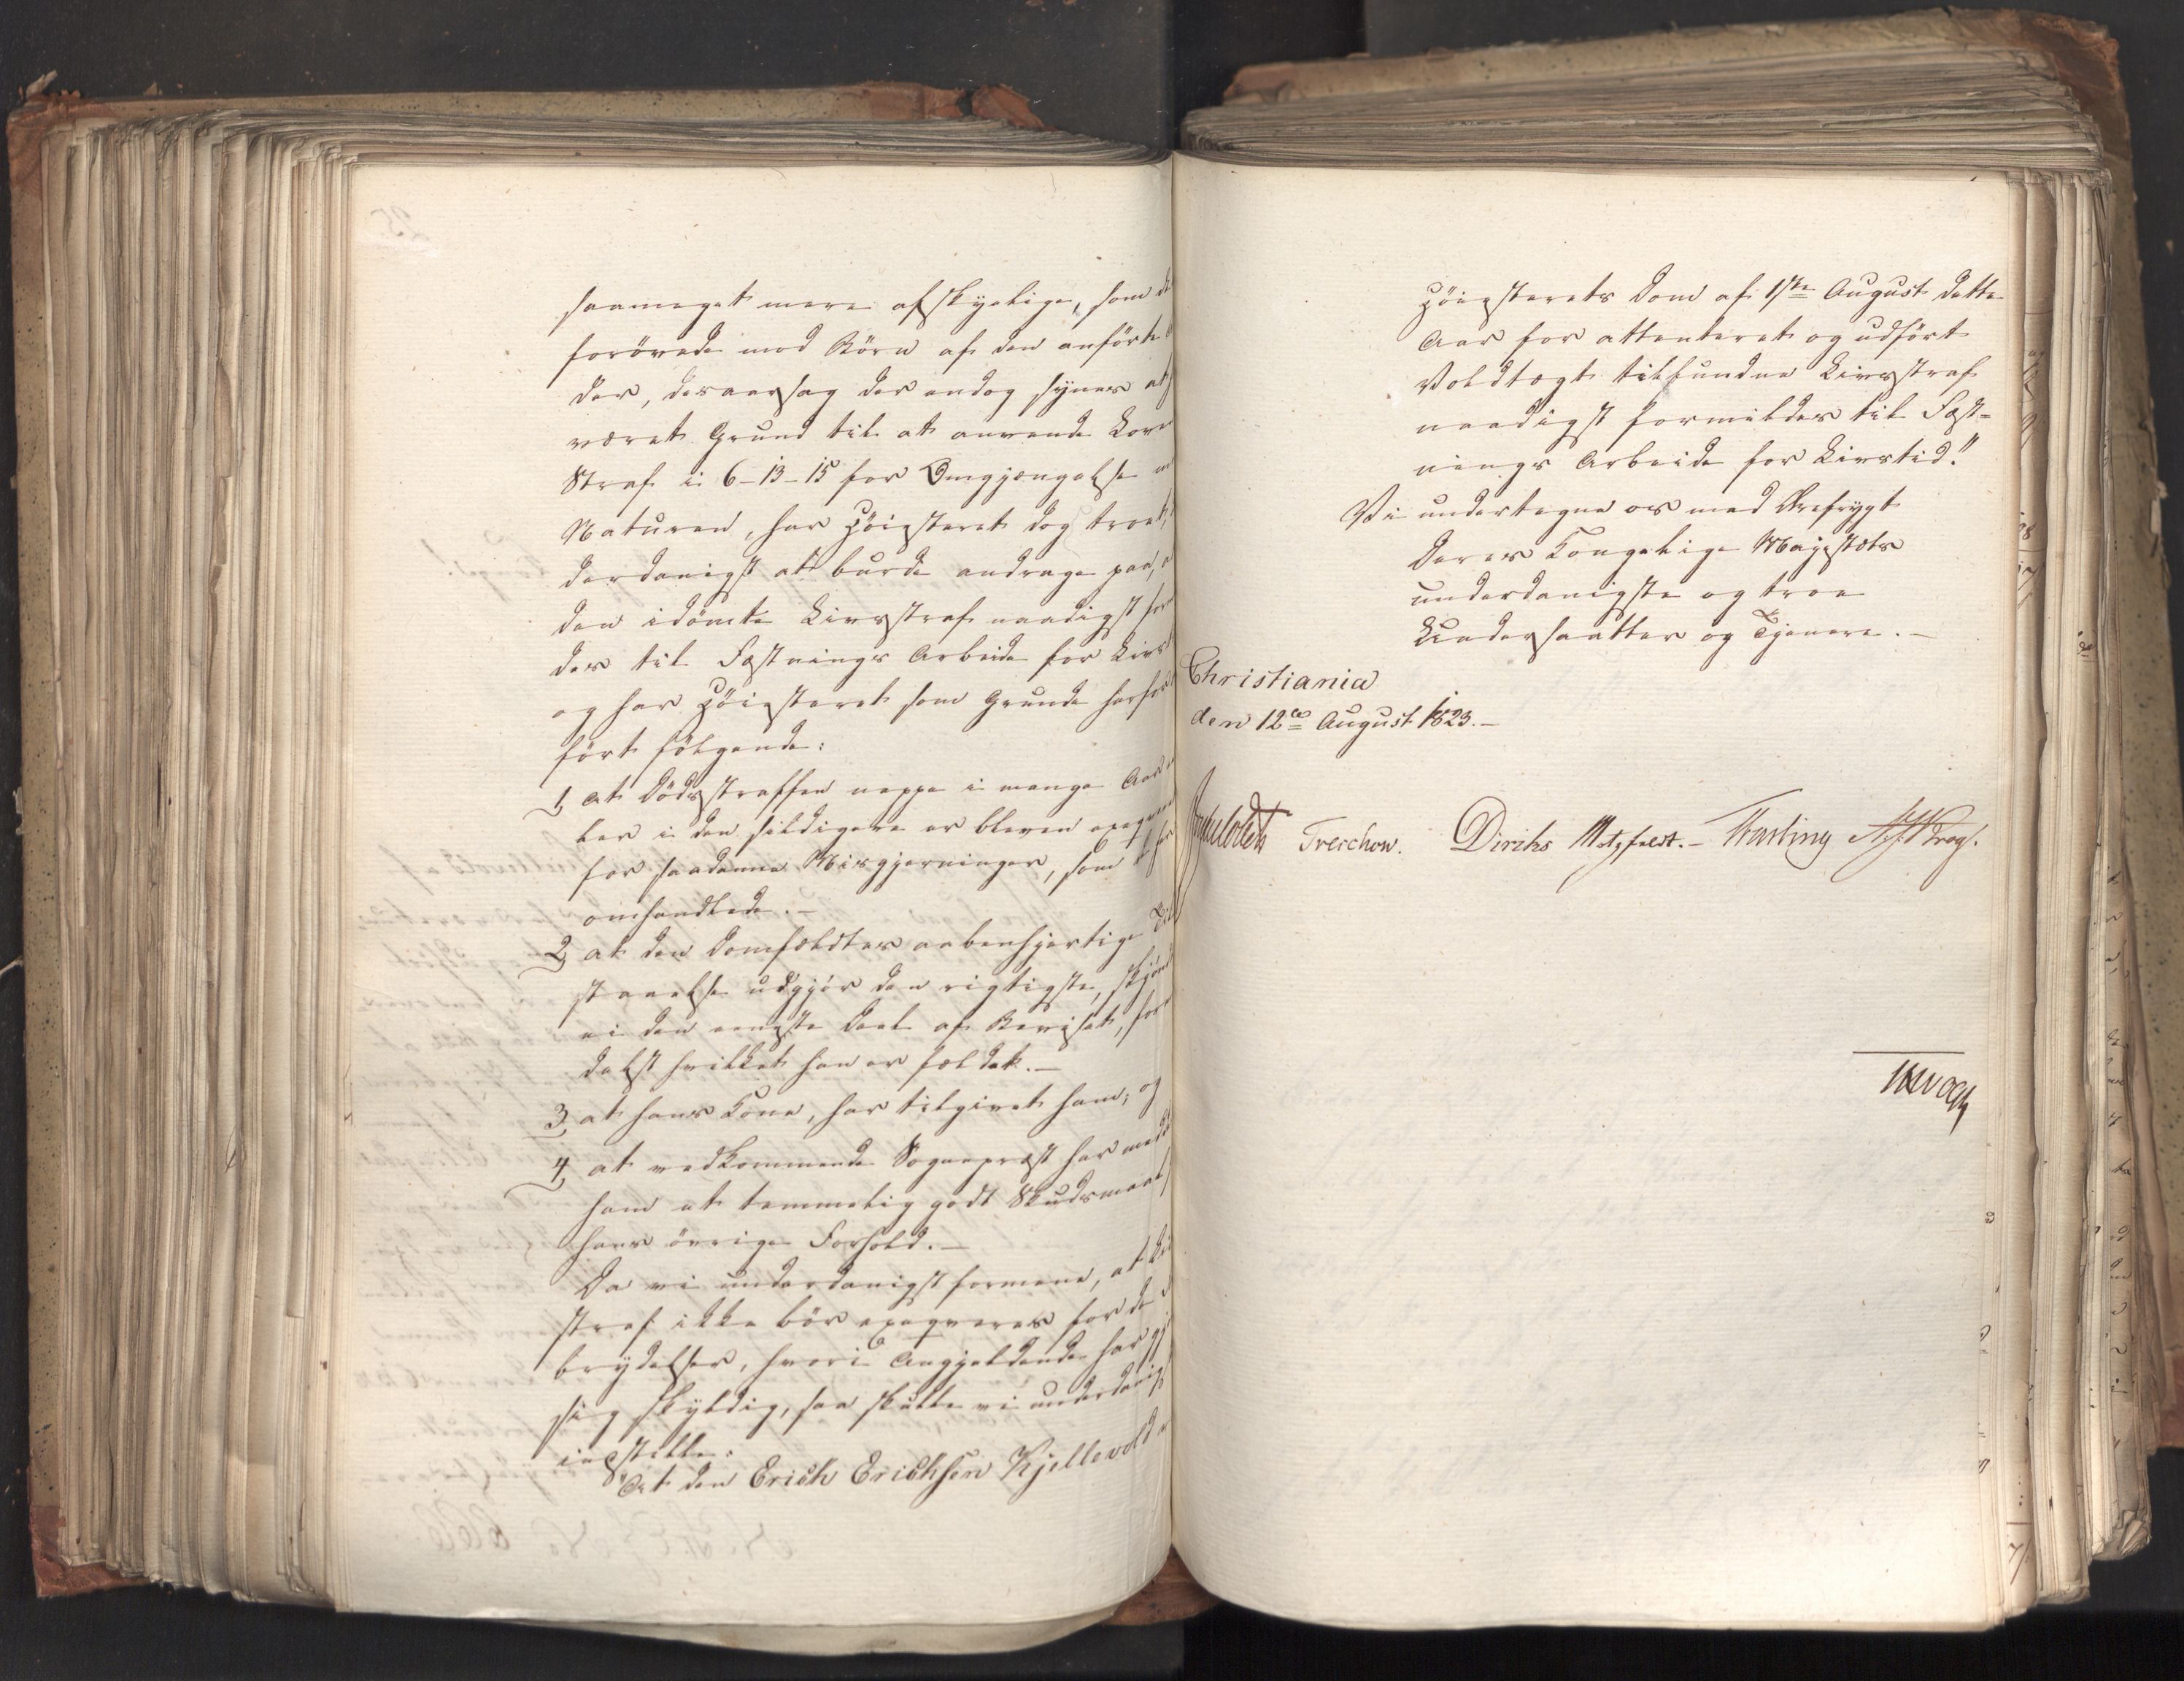 saameget mere afskyelige, som de
forövede mod Börn af den anförte
der, desaarsag der endog synes at
været Grund til at anvende Lovens
Straf i 6-13-15 for Omgjængelse
Naturen, har Höiesteret dog troet,
derdanigst at burde andrage paa,
den idömte Livsstraf naadigst for
des til Fæstnings Arbeide for Livs
og har Höiesteret som Grunde herfor
fört fölgende:
1, at Dödsstraffen neppe i mange Aar
ler i den sildigere er bleven exeqveret
for saadanne Misgjerninger, som de her
omhandlede.-
2, at den Domfældtes aabenhjertige Til
staaelse udgjör den rigtigste, skjönt
ei den eneste Deel af Beviset, for
delst hvilket han er fældet.-
3, at hans Kone, har tilgivet ham; og
4, at vedkommende Sognepræst har medd
ham et temmelig godt Skudsmaal
hans övrige Forhold.-
Da vi underdanigst formene, at Liv
straf ikke bör exeqveres for de
brydelser, hvori Angjeldende har gj
sig skyldig, saa skulle vi underdanig
indstille:
"At den Erich Erichsen Kjellevold
Höiesterets Dom af 1ste August dette
Aar for attenteret og udfört
Voldtægt tilfundne Livsstraf
naadigst formildes til Fæst=
nings Arbeide for Livstid."
Vi undertegne os med Ærefrygt
Deres Kongelige Majestæts
underdanigste og troe
Undersaatter og Tjenere.-
Christiania
den 12te August 1823.-
Treschow. Diriks Motzfeldt.- Fasting Krog.